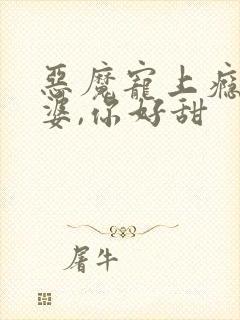 惡魔寵上癮
婆,你好甜
屠牛